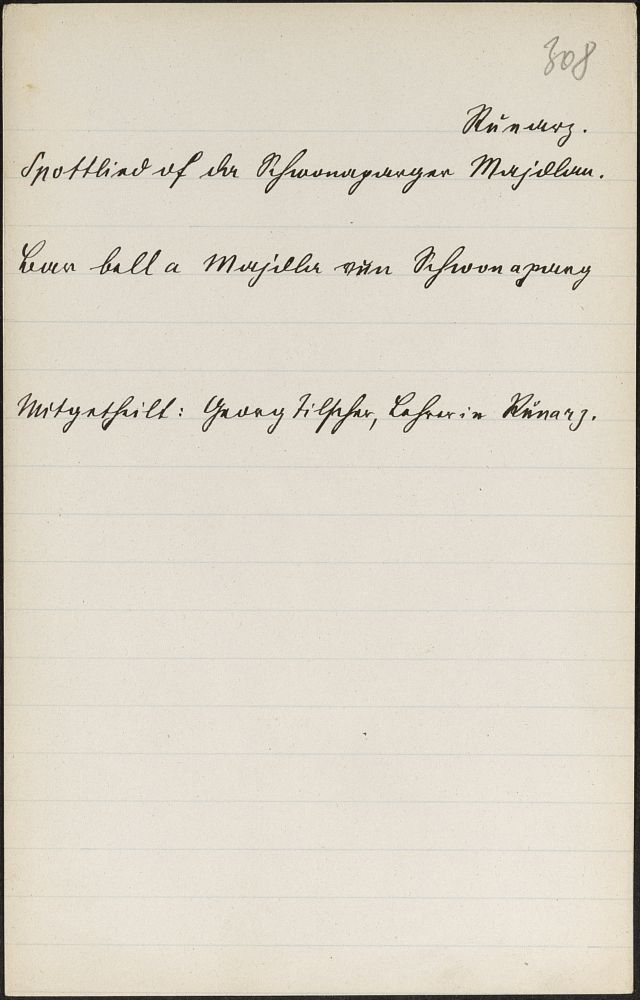 308
Runarz.
Spottlied of da Schwonaparger Majdlan.
War bell a Majdla vun Schwonaparg
Mitgetheilt: Georg Tilscher, Lehrer in Runarz.